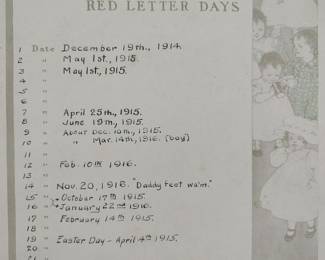 RED LETTER DAYS
1 Date December 19th., 1914.
2 " May 1st., 1915.
3 " May 1st., 1915.
4 "
5 "
6 "
7 " April 25th., 1915.
8 " June 19th., 1915.
9 " About Dec. 10th., 1915.
10 " " Mar. 14th., 1916. (boy)
11 "
12 " Feb. 10th 1916.
13 "
14 " Nov. 20, 1916. "Daddy feet wa'm."
15 " October 17th 1915.
16 " January 22nd 1916.
17 " February 14th 1915.
18 "
19 " Easter Day - April 4th 1915.
20 "
21 "